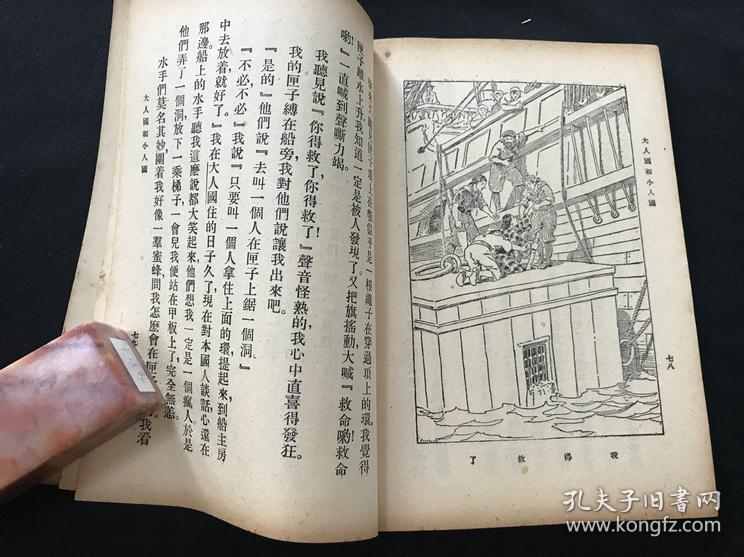 大人國和小人國
七八
我得救了
在響似乎是一根繩子在穿過項上的環。我覺得
匣子離水上升我知道一定是被人發現了又把旗搖動大喊『救命喲救命
喲!』一直喊到聲嘶力竭。
我聽見說『你得救了你得救了!』聲音怪熟的我心中直喜得發狂。
我的匣子縛在船旁我對他們說讓我出來吧。
『是的』他們說『去叫一個人在匣子上鋸一個洞』
『不必不必』我說『只要叫一個人拿住上面的環提起來到船主房
中去放着就好了』我在大人國住的日子久了現在對本國人談話心還在
那邊船上的水手聽我這麽說都大笑起來他們想我一定是一個瘋人於是
他們弄了一個洞放下一乘梯子一會兒我便站在甲板上了完全無恙。
水手們莫名其妙圍着我好像一羣蜜蜂問我怎麽會在匣 我看
大人國和小人國
七
孔夫子旧书网
kongfz.com